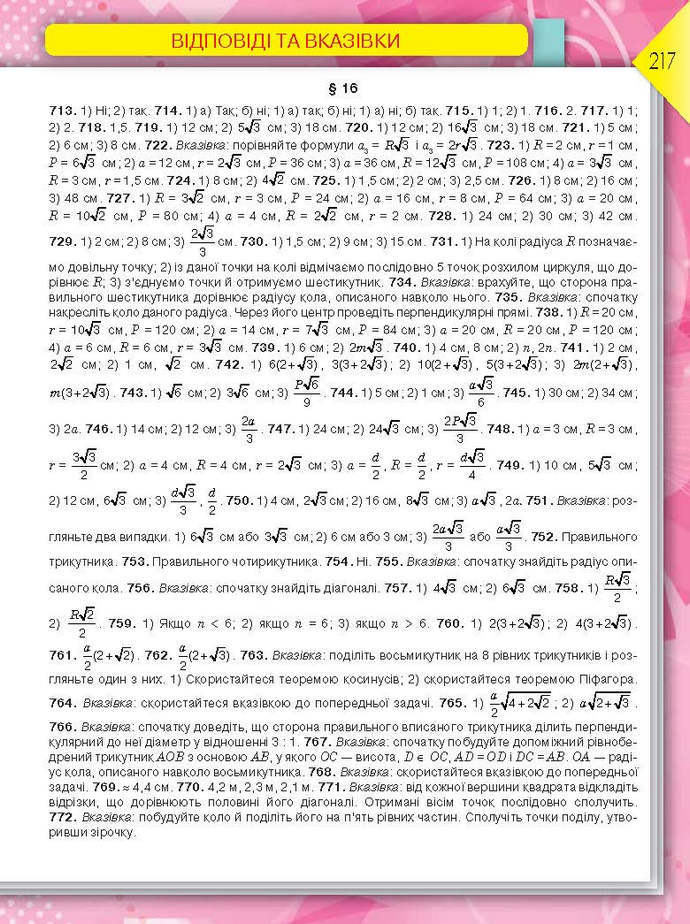 ВІДПОВІДІ ТА ВКАЗІВКИ
217
§ 16
713. 1) Ні; 2) так. 714. 1) а) Так; б) ні; 1) а) так; б) ні; 1) а) ні; б) так. 715. 1) 1; 2) 1. 716. 2. 717. 1) 1;
2) 2. 718. 1,5. 719. 1) 12 см; 2) 5√3 см; 3) 18 см. 720. 1) 12 см; 2) 16√3 см; 3) 18 см. 721. 1) 5 см;
2) 6 см; 3) 8 см. 722. Вказівка: порівняйте формули a₃ = R√3 і a₃ = 2r√3. 723. 1) R = 2 см, r = 1 см,
P = 6√3 см; 2) a = 12 см, r = 2√3 см, P = 36 см; 3) a = 36 см, R = 12√3 см, P = 108 см; 4) a = 3√3 см,
R = 3 см, r = 1,5 см. 724. 1) 8 см; 2) 4√2 см. 725. 1) 1,5 см; 2) 2 см; 3) 2,5 см. 726. 1) 8 см; 2) 16 см;
3) 48 см. 727. 1) R = 3√2 см, r = 3 см, P = 24 см; 2) a = 16 см, r = 8 см, P = 64 см; 3) a = 20 см,
R = 10√2 см, P = 80 см; 4) a = 4 см, R = 2√2 см, r = 2 см. 728. 1) 24 см; 2) 30 см; 3) 42 см.
729. 1) 2 см; 2) 8 см; 3) 2√3/3 см. 730. 1) 1,5 см; 2) 9 см; 3) 15 см. 731. 1) На колі радіуса R позначає-
мо довільну точку; 2) із даної точки на колі відмічаємо послідовно 5 точок розхилом циркуля, що до-
рівнює R; 3) з'єднуємо точки й отримуємо шестикутник. 734. Вказівка: врахуйте, що сторона пра-
вильного шестикутника дорівнює радіусу кола, описаного навколо нього. 735. Вказівка: спочатку
накресліть коло даного радіуса. Через його центр проведіть перпендикулярні прямі. 738. 1) R = 20 см,
r = 10√3 см, P = 120 см; 2) a = 14 см, r = 7√3 см, P = 84 см; 3) a = 20 см, R = 20 см, P = 120 см;
4) a = 6 см, R = 6 см, r = 3√3 см. 739. 1) 6 см; 2) 2m√3. 740. 1) 4 см, 8 см; 2) n, 2n. 741. 1) 2 см,
2√2 см; 2) 1 см, √2 см. 742. 1) 6(2+√3), 3(3+2√3); 2) 10(2+√3), 5(3+2√3); 3) 2m(2+√3),
m(3+2√3). 743. 1) √6 см; 2) 3√6 см; 3) P√6/9. 744. 1) 5 см; 2) 1 см; 3) a√3/6. 745. 1) 30 см; 2) 34 см;
3) 2a. 746. 1) 14 см; 2) 12 см; 3) 2a/3. 747. 1) 24 см; 2) 24√3 см; 3) 2P√3/3. 748. 1) a = 3 см, R = 3 см,
r = 3√3/2 см; 2) a = 4 см, R = 4 см, r = 2√3 см; 3) a = d/2, R = d/2, r = d√3/4. 749. 1) 10 см, 5√3 см;
2) 12 см, 6√3 см; 3) d√3/3, d/2. 750. 1) 4 см, 2√3 см; 2) 16 см, 8√3 см; 3) a√3, 2a. 751. Вказівка: роз-
гляньте два випадки. 1) 6√3 см або 3√3 см; 2) 6 см або 3 см; 3) 2a√3/3 або a√3/3. 752. Правильного
трикутника. 753. Правильного чотирикутника. 754. Ні. 755. Вказівка: спочатку знайдіть радіус опи-
саного кола. 756. Вказівка: спочатку знайдіть діагоналі. 757. 1) 4√3 см; 2) 6√3 см. 758. 1) R√3/2;
2) R√2/2. 759. 1) Якщо n < 6; 2) якщо n = 6; 3) якщо n > 6. 760. 1) 2(3+2√3); 2) 4(3+2√3).
761. a/2(2+√2). 762. a/2(2+√3). 763. Вказівка: поділіть восьмикутник на 8 рівних трикутників і роз-
гляньте один з них. 1) Скористайтеся теоремою косинусів; 2) скористайтеся теоремою Піфагора.
764. Вказівка: скористайтеся вказівкою до попередньої задачі. 765. 1) a/2√(4+2√2); 2) a√(2+√3).
766. Вказівка: спочатку доведіть, що сторона правильного вписаного трикутника ділить перпенди-
кулярний до неї діаметр у відношенні 3 : 1. 767. Вказівка: спочатку побудуйте допоміжний рівнобе-
дрений трикутник AOB з основою AB, у якого OC — висота, D ∈ OC, AD = OD і DC = AB. OA — раді-
ус кола, описаного навколо восьмикутника. 768. Вказівка: скористайтеся вказівкою до попередньої
задачі. 769. ≈ 4,4 см. 770. 4,2 м, 2,3 м, 2,1 м. 771. Вказівка: від кожної вершини квадрата відкладіть
відрізки, що дорівнюють половині його діагоналі. Отримані вісім точок послідовно сполучить.
772. Вказівка: побудуйте коло й поділіть його на п'ять рівних частин. Сполучіть точки поділу, утво-
ривши зірочку.